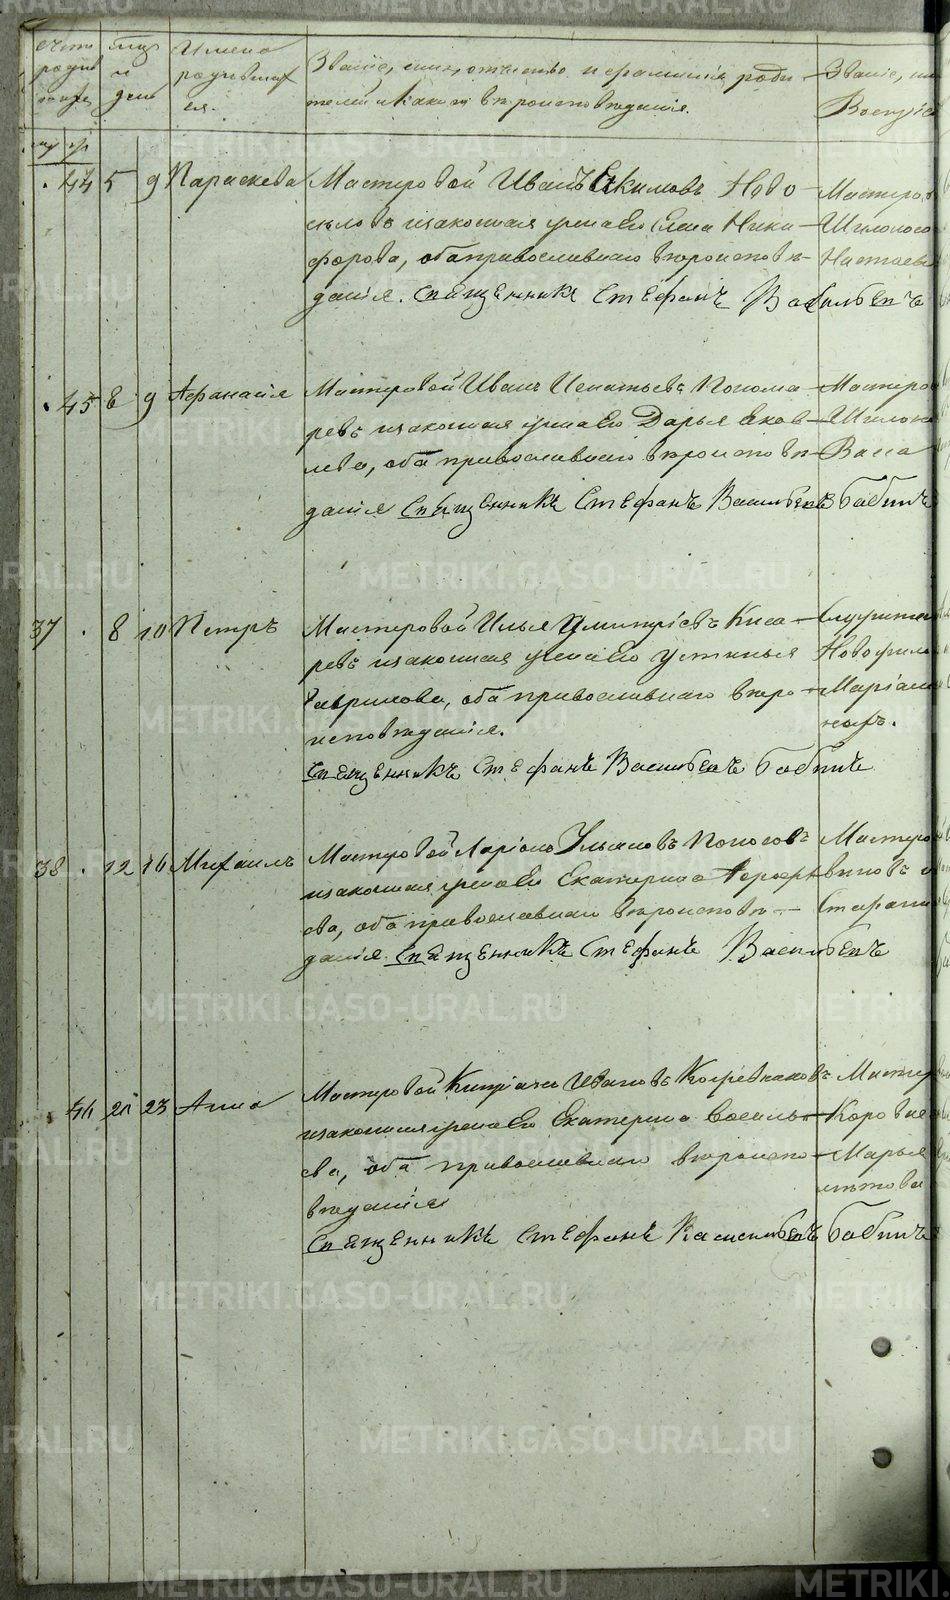 Счетъ родив шихся
Мѣс и день
Имена родившихся.
Званіе, имя, отчество и фамилія роди-
телей и какого вѣроисповѣданія.
Званіе, им
Воспріе
44 5 9 Параскева Мастеровой Иванъ Екимовъ Ново-
селовъ и законная жена его Елена Ники-
форова, оба православнаго вѣроисповѣ-
данія. Священникъ Стефанъ Васильевъ
Мастеров
45 6 9 Афанасія Мастеровой Иванъ Игнатьевъ Понома-
ревъ и законная жена его Дарья Яков-
лева, оба православнаго вѣроисповѣ-
данія Священникъ Стефанъ Васильевъ Бабинъ
Мастеро
Васса
37 8 10 Петръ Мастеровой Илья Дмитріевъ Киса-
ревъ и законная жена его Устинья
Гаврилова, оба православнаго вѣро-
исповѣданія.
Священникъ Стефанъ Васильевъ Бабинъ
Служител
38 12 16 Михаилъ Мастеровой Ларіонъ Ульяновъ Поносовъ
и законная жена его Екатерина
ва, оба православнаго вѣроисповѣ-
данія. Священникъ Стефанъ Васильевъ
Мастеро
46 21 23 Анна Мастеровой Кипріанъ Ивановъ Кожевниковъ
и законная жена его Екатерина Василь-
ева, оба православнаго вѣроиспо-
вѣданія
Священникъ Стефанъ Васильевъ Бабинъ
Мастер
Марья
METRIKI.GASO-URAL.RU